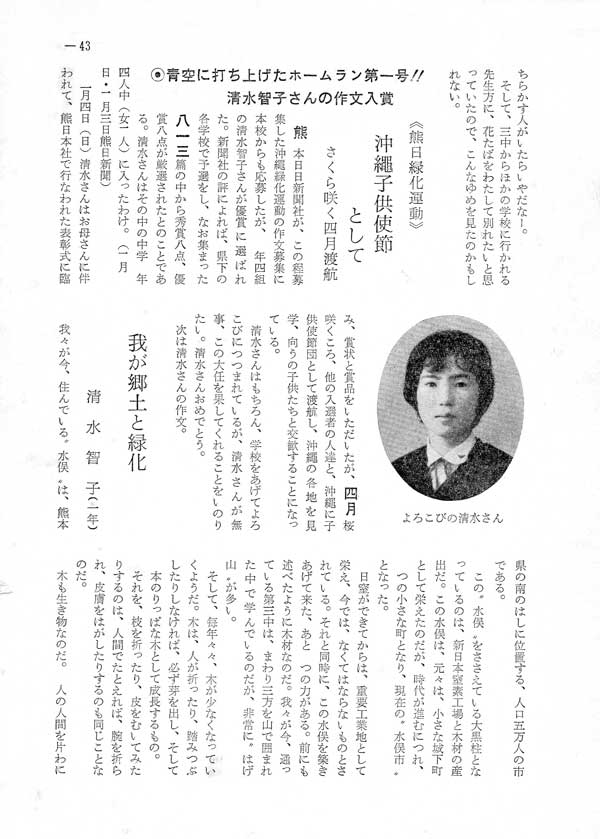 ― 43
ちらかす人がいたらいやだなー。
そして、三中からほかの学校に行かれる
先生方に、花たばをわたして別れたいと思
っていたので、こんなゆめを見たのかもし
れない。
◉青空に打ち上げたホームラン第一号!!
清水智子さんの作文入賞
《熊日緑化運動》
沖縄子供使節
として
さくら咲く四月渡航
熊本日日新聞社が、この程募
集した沖縄緑化運動の作文募集に
本校からも応募したが、 年四組
の清水智子さんが優賞に選ばれ
た。新聞社の評によれば、県下の
各学校で予選をし、なお集まった
八一三篇の中から秀賞八点、優
賞八点が厳選されたとのことであ
る。清水さんはその中の中学 年
四人中(女一人)に入ったわけ。(一月
日・一月三日熊日新聞)
一月四日(日)清水さんはお母さんに伴
われて、熊日本社で行なわれた表彰式に臨
み、賞状と賞品をいただいたが、四月桜
咲くころ、他の入選者の人達と、沖縄に子
供使節団として渡航し、沖縄の各地を見
学、向うの子供たちと交歓することになっ
ている。
清水さんはもちろん、学校をあげてよろ
こびにつつまれているが、清水さんが無
事、この大任を果してくれることをいのり
たい。清水さんおめでとう。
次は清水さんの作文。
よろこびの清水さん
我が郷土と緑化
清水智子(一年)
我々が今、住んでいる〝水俣〟は、熊本
県の南のはしに位置する、人口五万人の市
である。
この〝水俣〟をささえている大黒柱とな
っているのは、新日本窒素工場と木材の産
出だ。この水俣は、元々は、小さな城下町
として栄えたのだが、時代が進むにつれ、
つの小さな町となり、現在の〝水俣市〟
となった。
日窒ができてからは、重要工業地として
栄え、今では、なくてはならないものとさ
れている。それと同時に、この水俣を築き
あげて来た、あと つの力がある。前にも
述べたように木材なのだ。我々が今、通っ
ている第三中は、まわり三方を山で囲まれ
た中で学んでいるのだが、非常に〝はげ
山〟が多い。
そして、毎年々々、木が少なくなってい
くようだ。木は、人が折ったり、踏みつぶ
したりしなければ、必ず芽を出し、そして
本のりっぱな木として成長するもの。
それを、枝を折ったり、皮をむいてみた
りするのは、人間でたとえれば、腕を折ら
れ、皮膚をはがしたりするのも同じことな
のだ。
木も生き物なのだ。 人の人間を片わに